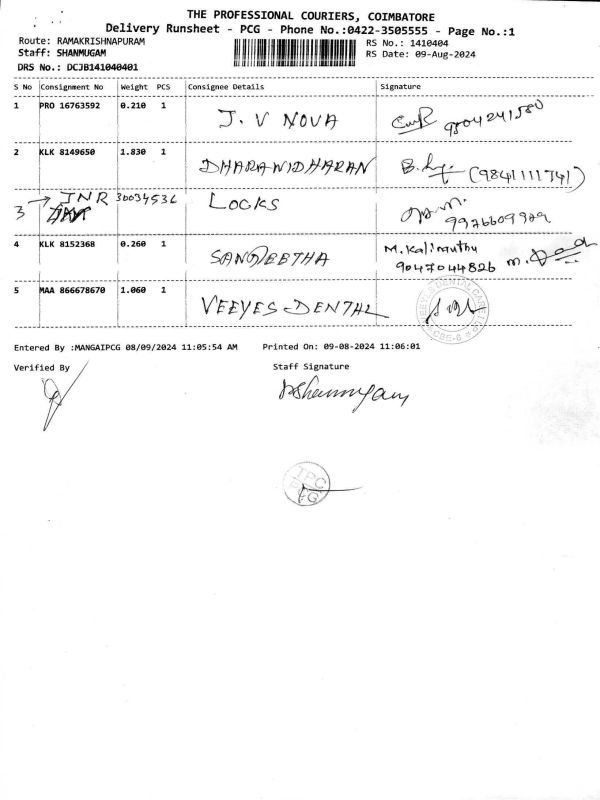 THE PROFESSIONAL COURIERS, COIMBATORE
Delivery Runsheet - PCG - Phone No.:0422-3505555 - Page No.:1
Route: RAMAKRISHNAPURAM
RS No.: 1410404
Staff: SHANMUGAM
RS Date: 09-Aug-2024
DRS No.: DCJB141040401
S No Consignment No Weight PCS Consignee Details Signature
1 PRO 16763592 0.210 1 J. V NOVA 9804241580
2 KLK 8149650 1.830 1 DHARANIDHARAN (9841111741)
3 JNR 30034536 LOCKS
4 KLK 8152368 0.260 1 SANGEETHA M.Kalimuthu
9047044826
5 MAA 866678670 1.060 1 VEEYES DENTAL
Entered By :MANGAIPCG 08/09/2024 11:05:54 AM Printed On: 09-08-2024 11:06:01
Verified By Staff Signature
TPC